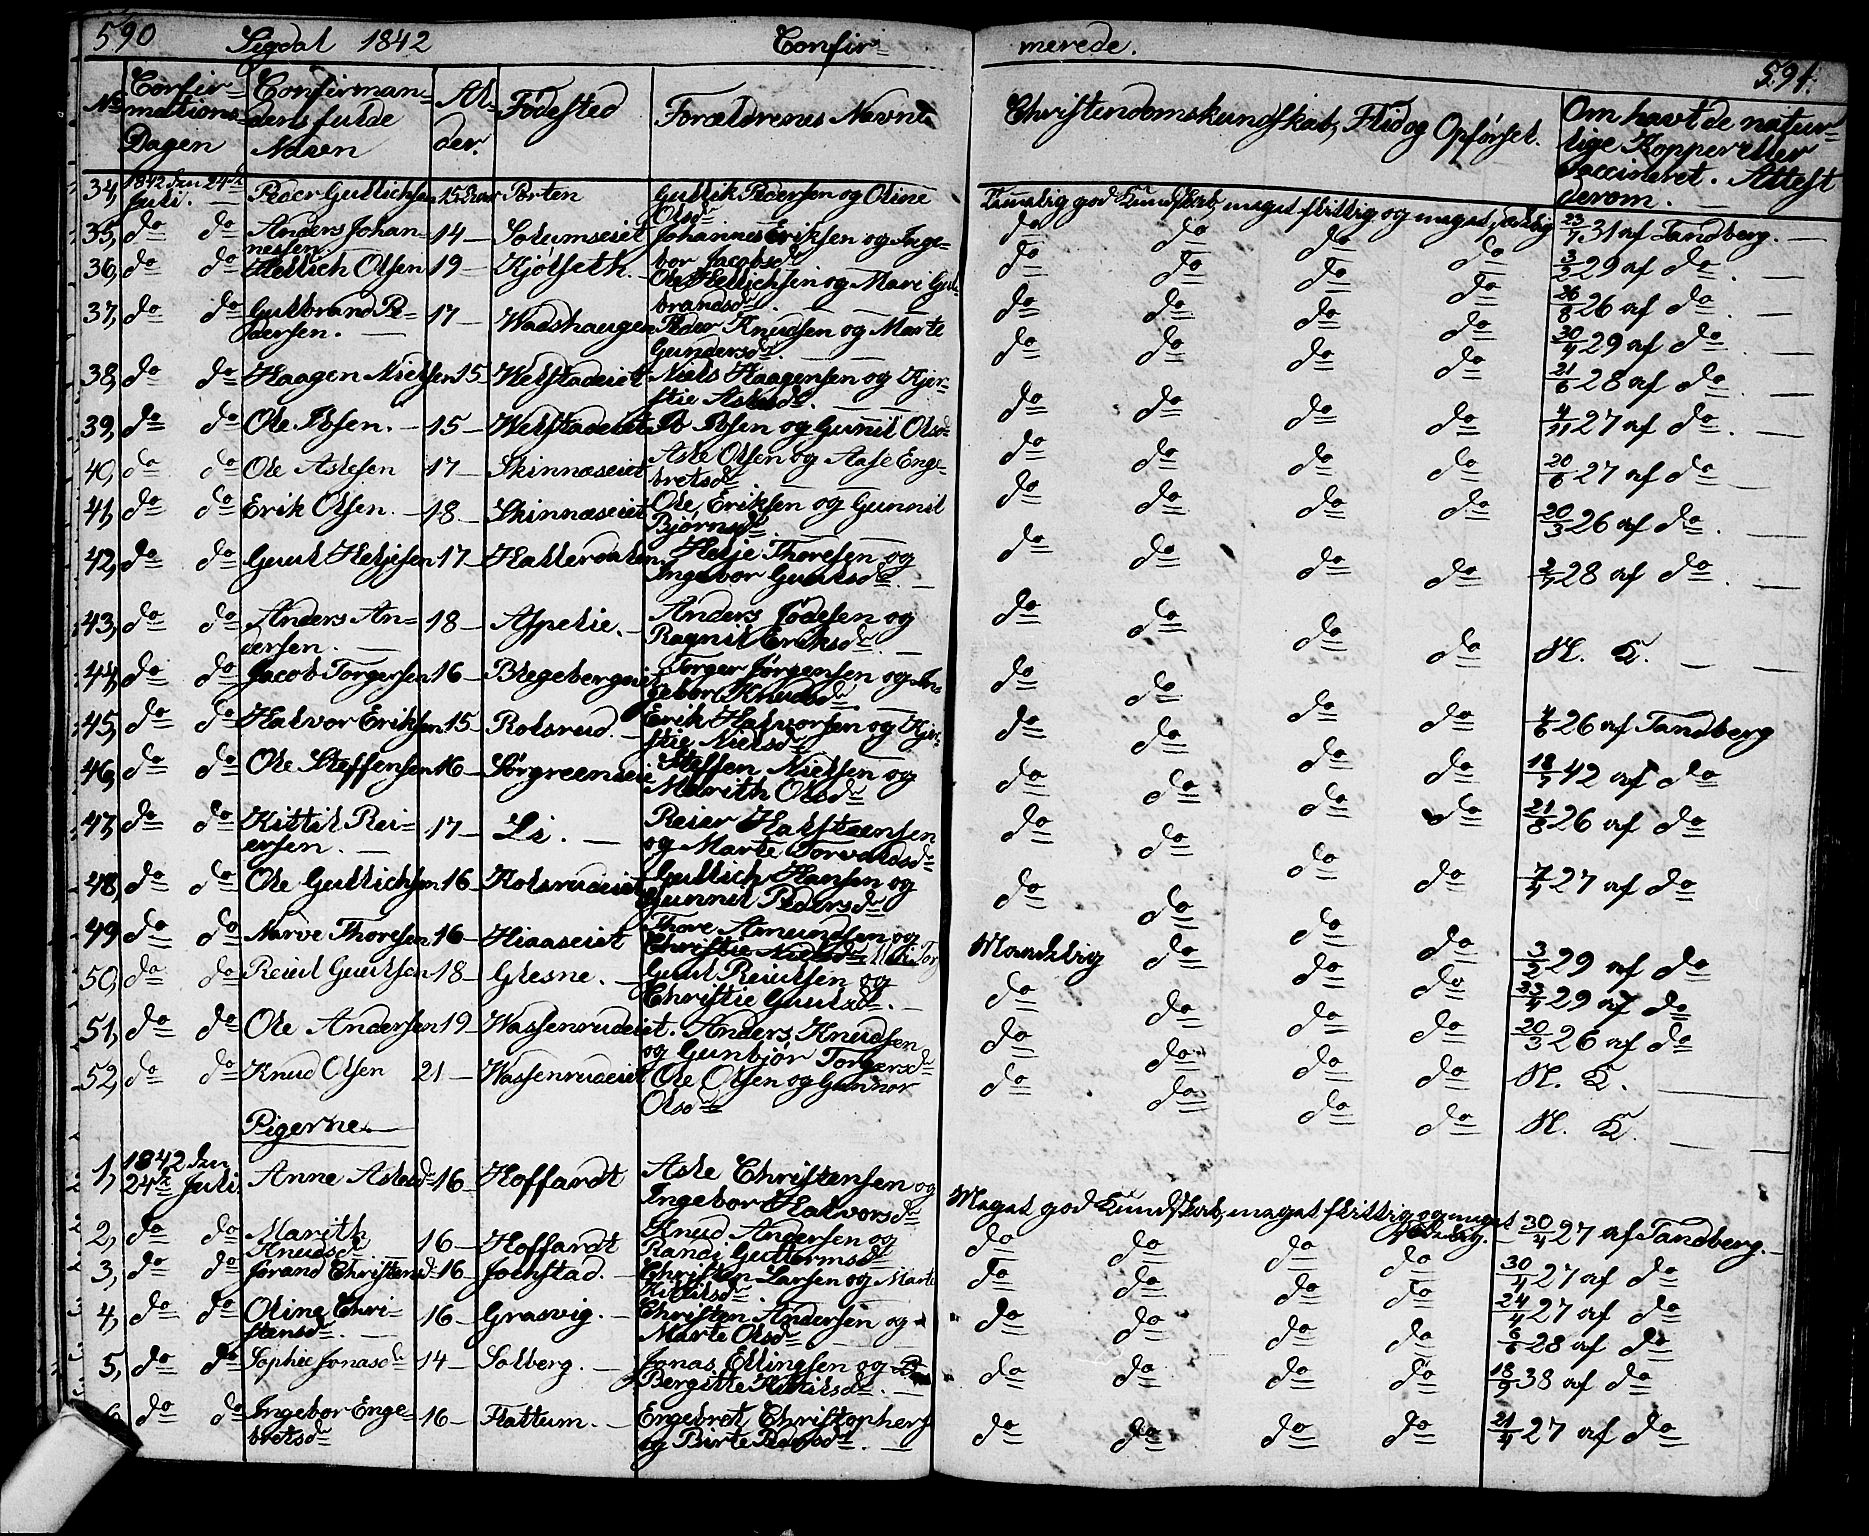 590 Sigdal 1842 Confir=
merede. 591.
No Confir=
mations
Dagen
Confirman=
dens fulde
Navn
Al=
der.
Fødested
Forældrenes Navne
Christendomskundskab, Flid og Opførsel.
Om havt de natur=
lige Kopper eller
vaccineret. Attest
derom.
34, 1842 den 24de Juli. Peder Gullichsen 15 Porten Gullik Pedersen og Oline
Olsd. Temmelig god Kundskab, meget flittig og meget sædelig 23/7 31 af Tandberg.
35, do do Anders Johan= 14 Solumseiet Johannes Eriksen og Inge= do do do do 3/2 29 af do.
nessen. bor Jacobsd.
36, do do Hellich Olsen 19 Kjølseth. Ole Hellichsen og Mari Gul= do do do do 26/8 26 af do.
brandsd.
37, do do Gulbrand Pe= 17 Wadshaugen Peder Knudsen og Marte do do do do 30/4 29 af do.
dersen. Gundersd.
38, do do Haagen Nielsen 15 Welstadeiet Niels Haagensen og Kjer= do do do do 21/6 28 af do.
stie Aslesd.
39, do do Ole Ibsen. 15 Welstadeiet Ib Ibsen og Gunil Olsd. do do do do 4/11 27 af do.
40, do do Ole Aslesen 17 Skinnæseiet Asle Olsen og Aase Enge= do do do do 20/6 27 af do
bretsd.
41, do do Erik Olsen. 18 Skinnæseiet Ole Eriksen og Gunnil do do do do 20/3 26 af do.
Bjørnsd.
42, do do Guul Helgesen 17 Hallerdalen Helje Thoresen og do do do do 28 af do.
Ingebor Guulsd.
43, do do Anders An= 18 Aspelie. Anders Jodesen og do do do do N. K.
dersen. Ragnil Eriksd.
44, do do Jacob Torgersen 16 Blegebergeiet Torger Jørgensen og In=
gebor Knudsd. do do do do 4/6 26 af Tandberg
45, do do Halvor Eriksen 15 Rolsrud. Erik Halvorsen og Kjer=
stie Nielsd. do do do do 18/7 42 af do
46, do do Ole Steffensen 16 Sørgreeneneie Steffen Nielsen og
Marith Olsd. do do do do 21/8 26 af do
47, do do Kittil Rei= 17 Li. Reier Halsteensen
ersen. og Marte Torvaldsd. do do do do 7/4 27 af do
48, do do Ole Gullichsen 16 Kolsrudeiet Gullich Hansen og
Gunnil Pedersd. do do do do 3/2 29 af do
49 do do Narve Thoresen 16 Hiaaseiet Thore Amundsen og
Christie Nielsd. Maadelig do do do 29 af do
50, do do Reiul Guulsen 18 Glesne. Guul Reiulsen og
Christie Guulsd. do do do do 20/3 26 af do
51, do do Ole Andersen 19 Wassenrudeiet. Anders Knudsen
og Gunbjør Torgersd. do do do do N. K.
52, do do Knud Olsen 21 Wassenrudeiet Ole Olsen og Gunnor
Olsd. do do do do N. K.
Pigerne.
1, 1842 den
24de Juli. Anne Aslesd. 16 Hoffardt Asle Christensen og
Ingebor Halvorsd. Meget god Kundskab, meget flittig og meget
sædelig. 30/4 27 af Tandberg.
2, do do Marith 16 Hoffardt Knud Andersen og
Knudsd. Randi Guttormsd. do do do do 30/4 27 af do
3, do do Jorand Christensd. 16 Jochstad. Christen Larsen og Marte
Kittilsd. do do do do 24/4 27 af do
4, do do Oline Chri= 16 Grasvig. Christen Andersen og
stensd. Marte Olsd. do do do do 6/6 28 af do
5, do do Sophie Jonasd. 14 Solberg. Jonas Ellingsen og
Bergitte Kittilsd. do do do do 18/9 38 af do
6 do do Ingebor Enge= 16 Flattum. Engebret Christophers
bretsd. og Birte Pedersd. do do do do 21/4 27 af do